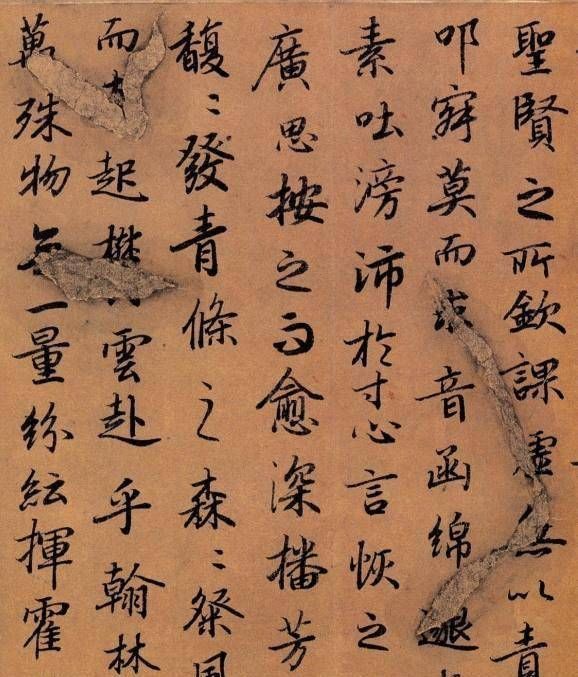 聖賢之所欽課虛無以責
叩寂莫而求音函綿邈
素吐滂沛於寸心言恢之
廣思按之而愈深播芳
馥〻發青條之森〻粲風
而起欝雲赴乎翰林
萬殊物無一量紛紜揮霍